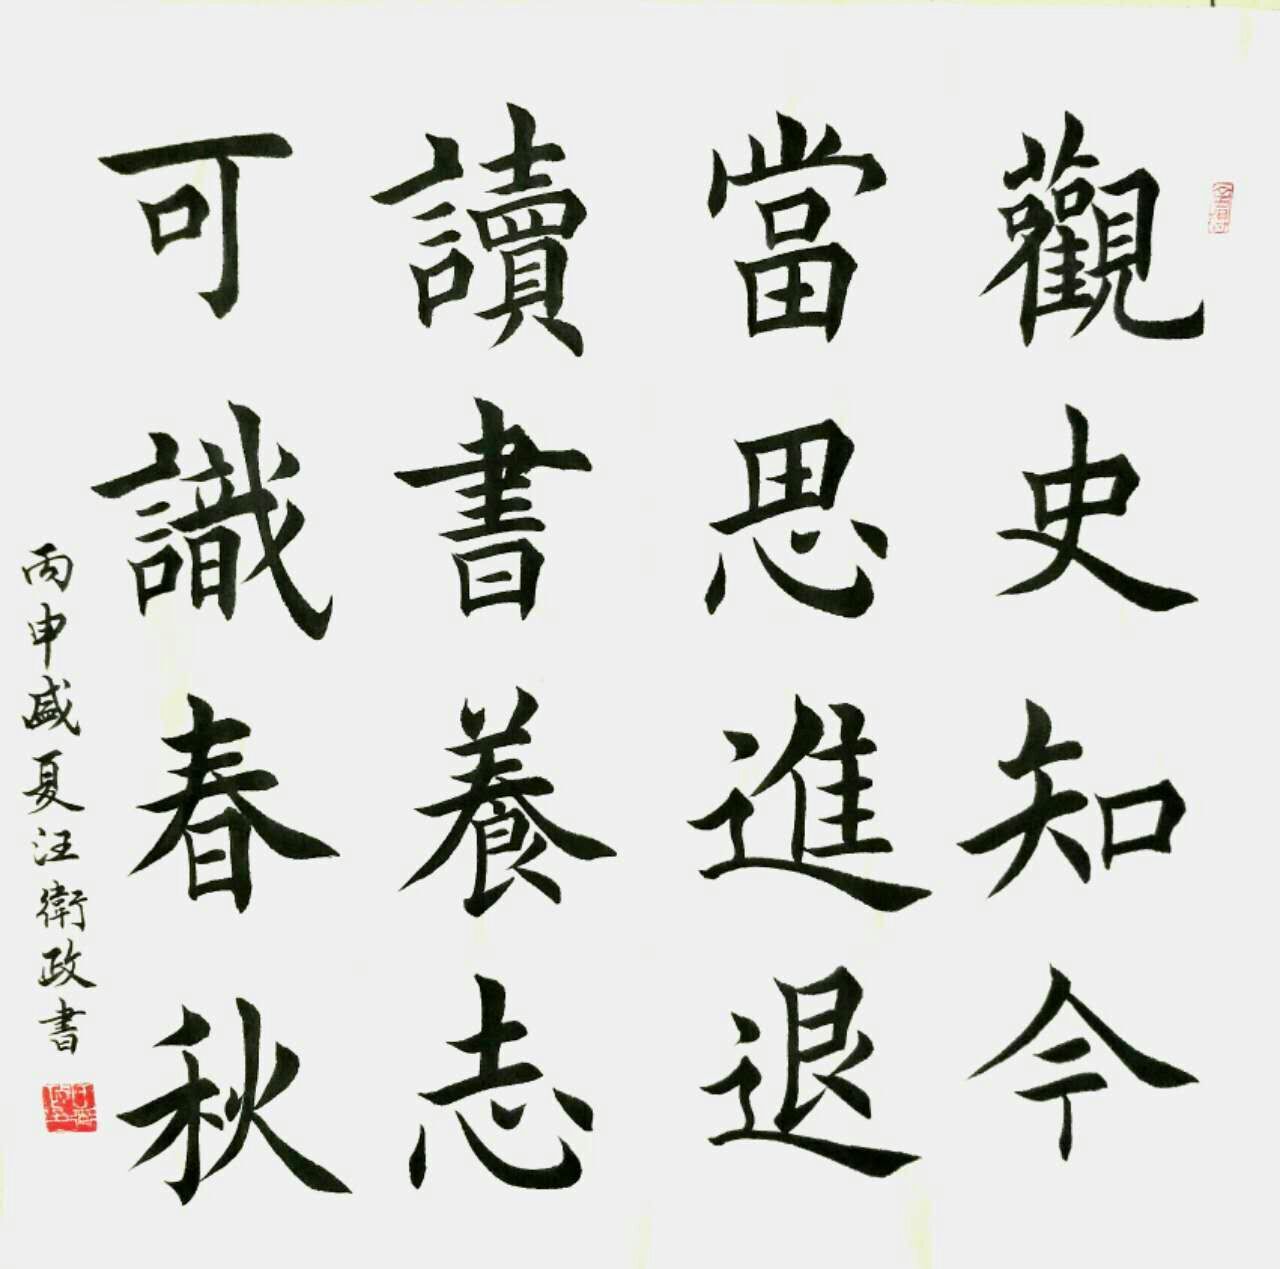 觀史知今
當思進退
讀書養志
可識春秋
丙申盛夏汪衛政書